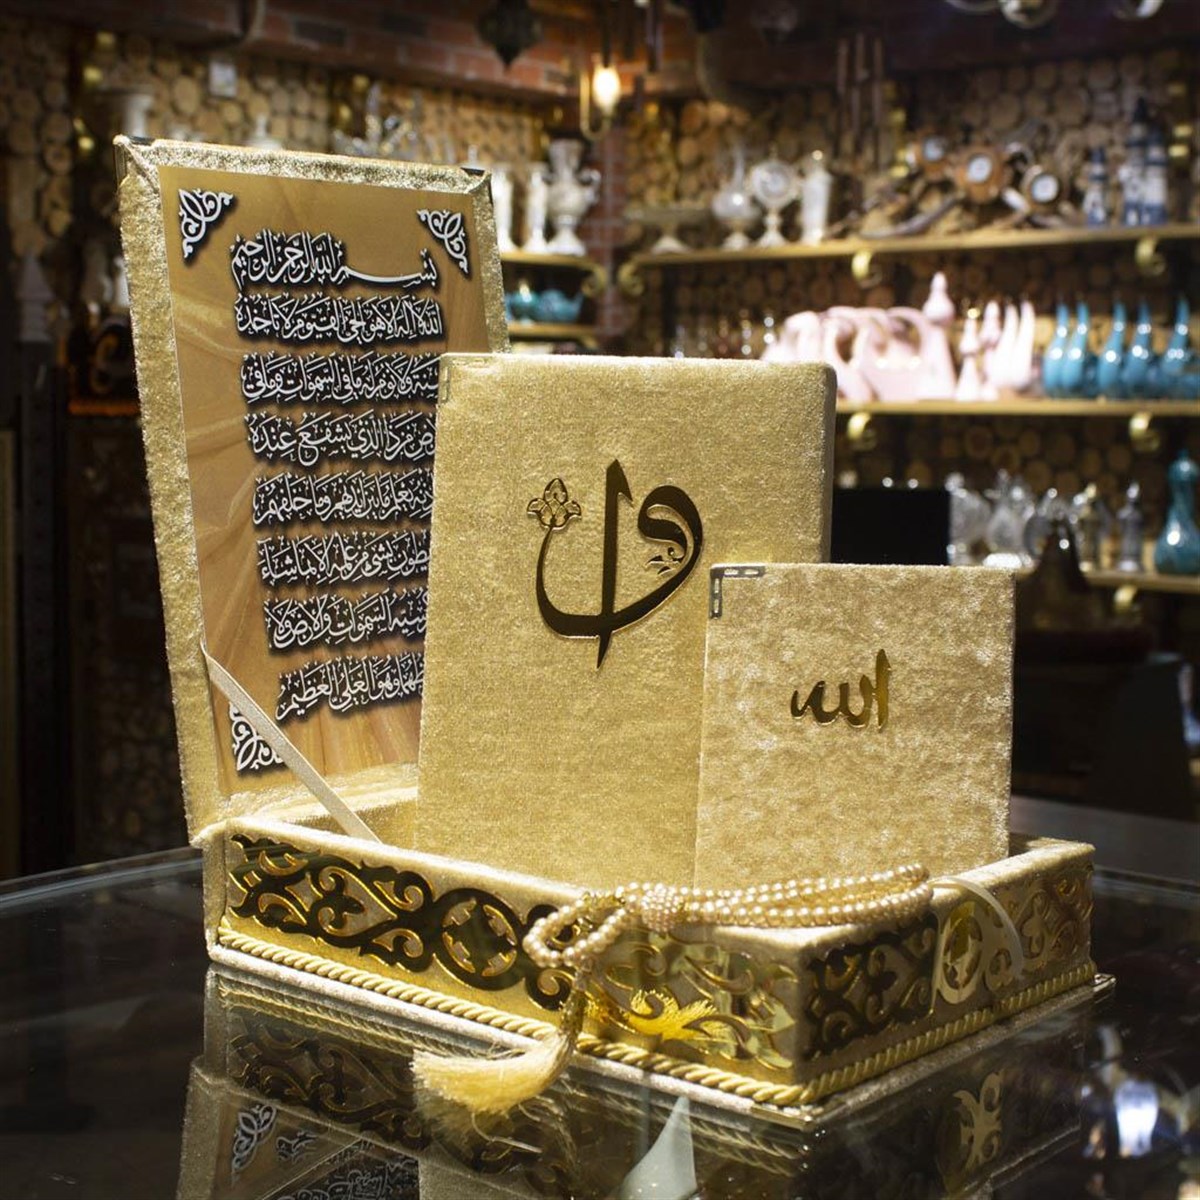 بسم الله الرحمن الرحيم
الله لا اله الا هو الحي القيوم لا تأخذه
سنة ولا نوم له ما في السموات وما في
الارض من ذا الذي يشفع عنده
الا باذنه يعلم ما بين ايديهم وما خلفهم
يحيطون بشيء من علمه الا بما شاء
كرسيه السموات والارض ولا
حفظهما وهو العلي العظيم
الله